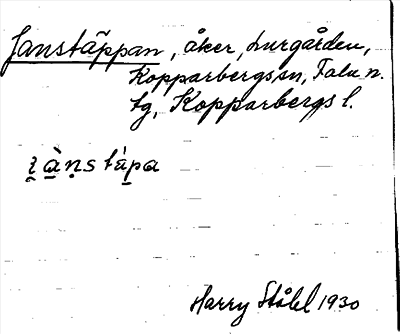 Janstäppan, åker, Lurgården,
Kopparbergs sn, Falu n.
tg, Kopparbergs l.
i̯à̠n̥s tä̀p̠a
Harry Ståhl 1930